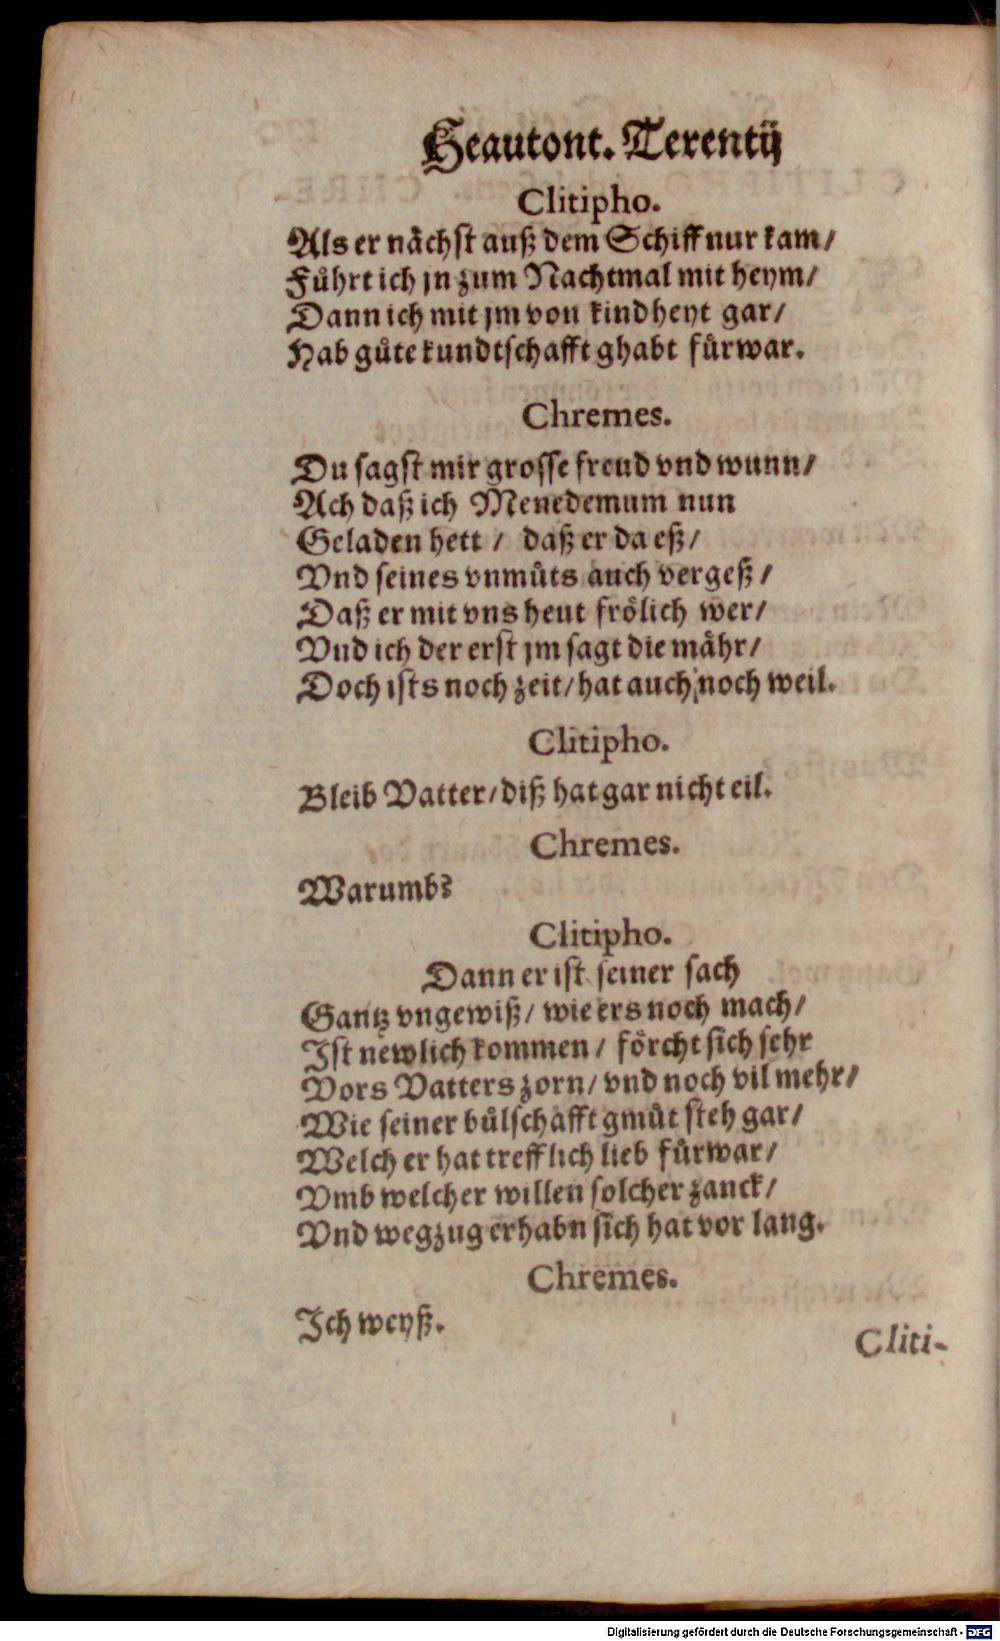 Heautont. Terentij
Clitipho.
Als er nåchst auß dem Schiff nur kam/
Fůhrt ich jn zum Nachtmal mit heym/
Dann ich mit jm von kindheyt gar/
Hab gůte kundtschafft ghabt fůrwar.
Chremes.
Du sagst mir grosse freud vnd wunn/
Ach daß ich Menedemum nun
Geladen hett / daß er da eß/
Vnd seines vnmůts auch vergeß/
Daß er mit vns heut frőlich wer/
Vnd ich der erst jm sagt die måhr/
Doch ists noch zeit/ hat auch noch weil.
Clitipho.
Bleib Vatter/ diß hat gar nicht eil.
Chremes.
Warumb?
Clitipho.
Dann er ist seiner sach
Gantz vngewiß/ wie ers noch mach/
Ist newlich kommen/ főrcht sich sehr
Vors Vatters zorn/ vnd noch vil mehr/
Wie seiner bůlschafft gmůt steh gar/
Welch er hat trefflich lieb fůrwar/
Vmb welcher willen solcher zanck/
Vnd wegzug erhabn sich hat vor lang.
Chremes.
Ich weyß.
Cliti-
Digitalisierung gefördert durch die Deutsche Forschungsgemeinschaft - DFG